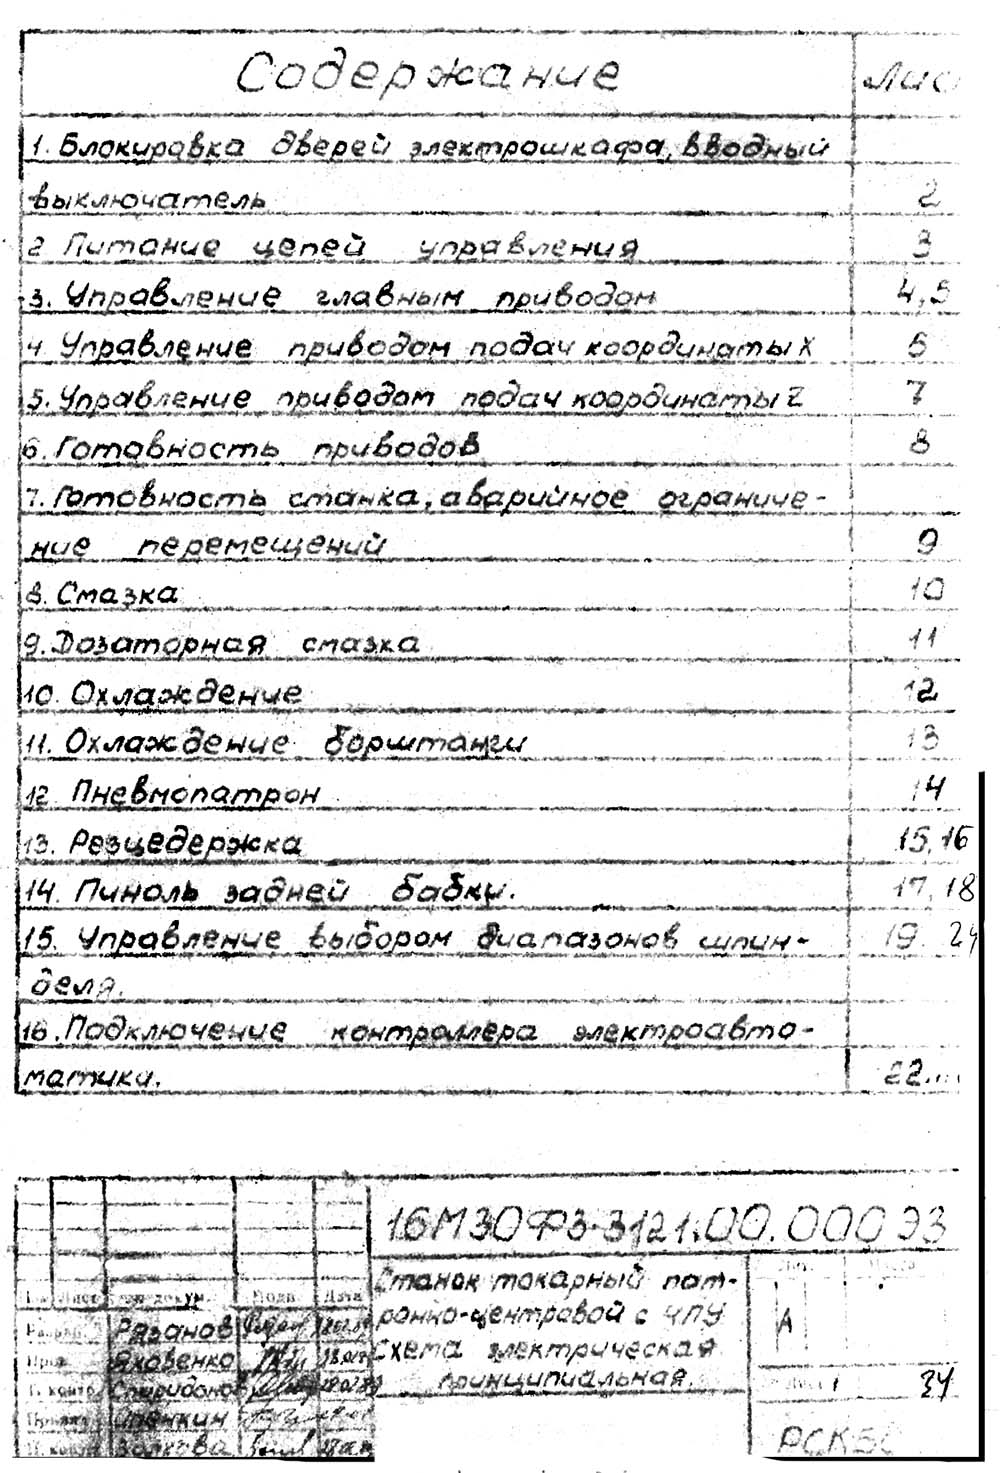 Содержание
1. Блокировка дверей электрошкафа, вводный
выключатель 2
2 Питание цепей управления 3
3. Управление главным приводом 4,5
4. Управление приводом подач координаты X 6
5. Управление приводом подач координаты Z 7
6. Готовность приводов 8
7. Готовность станка, аварийное ограниче-
ние перемещений 9
8. Смазка 10
9. Дозаторная смазка 11
10. Охлаждение 12
11. Охлаждение борштанги 13
12 Пневмопатрон 14
13. Резцедержка 15,16
14. Пиноль задней бабки. 17,18
15. Управление выбором диапазонов шпин- 19
деля.
16. Подключение контроллера электроавто-
матики. 22...
16М30Ф3-3121.00.000 Э3
Станок токарный пат-
ронно-центровой с ЧПУ
Схема электрическая
принципиальная.
А
Лист 1
Подп. Дата
Рязанов
Яковенко
Спиридонов